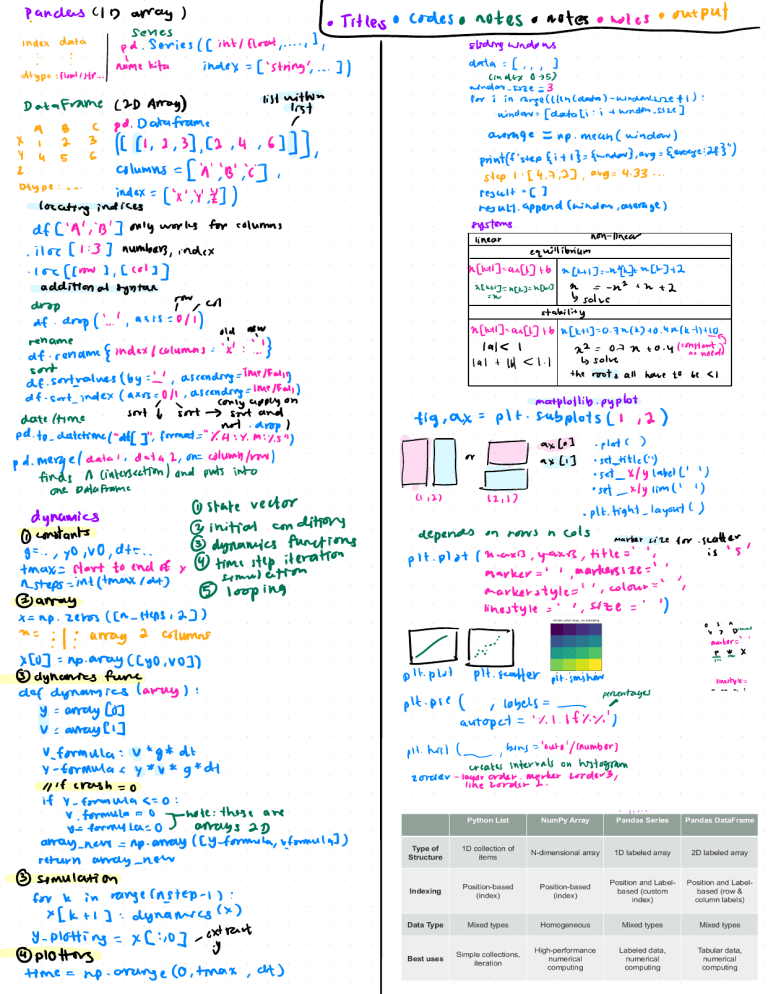 • Titles • codes • notes • notes • notes • output
pandas (1D array)
series
index data
pd.Series([int/float,....,],
name kita index = ['string',...])
dtype: float/str...
DataFrame (2D Array)
list within list
A B C
X 1 2 3
Y 4 5 6
Z
Dtype: ...
pd.Dataframe
([[1, 2, 3],[2, 4, 6]]],
columns = ['A','B','C'],
index = ['X','Y','Z'])
locating indices
df['A','B'] only works for columns
.iloc[1:3] numbers, index
.loc[[row],[col]]
additional syntax
drop
row col
df.drop('...', axis = 0/1)
rename
old new
df.rename{index/columns = 'x' : '...'}
sort
df.sort_values(by = '_', ascending = True/False)
df.sort_index(axis = 0/1, ascending = True/False)
sort ↓ sort → (only apply on sort and not .drop)
date/time
pd.to_datetime("df[ ]", format = "%H:%M:%S")
pd.merge(data1, data2, on = column/row)
finds ∩ (intersection) and puts into
one DataFrame
dynamics
① state vector
② initial conditions
③ dynamics functions
④ time step iteration
simulation
⑤ looping
① constants
g = .., y0, v0, dt = ..
tmax = start to end of x
n_steps = int(tmax/dt)
② array
x = np.zeros([n_steps, 2])
x = : | : | array 2 columns
x[0] = np.array([y0, v0])
③ dynamics func
def dynamics(array):
y = array[0]
v = array[1]
v_formula = v * g * dt
y-formula = y * v * g * dt
// if crash = 0
if y-formula <= 0:
v_formula = 0
y = formula = 0
note: these are
arrays 2D
array_new = np.array([y-formula, v-formula])
return array_new
③ simulation
for k in range(nstep-1):
x[k+1] : dynamics(x)
y-plotting = x[:,0] - extract y
④ plotters
time = np.arange(0, tmax, dt)
sliding windows
data = [ , , , ]
(index 0→5)
window_size = 3
for i in range(((len(data)-window_size+1):
window = [data[i: i+window_size]
average = np.mean(window)
print(f'step {i+1} = {window}, avg = {average:2f}")
step 1: [4,7,2], avg = 4.33 ...
result = [ ]
result.append(window, average)
systems
linear non-linear
equilibrium
x[k+1] = ax[k] + b x[k+1] = -x²[k] + x[k] + 2
x[k+1] = x[k] = x[k0] = x
x = -x² + x + 2
↳ solve
stability
x[k+1] = ax[k] + b x[k+1] = 0.7x(k) + 0.4x(k-1) + 10
|a| < 1
|a| + |b| < 1.1
x² = 0.7x + 0.4 (constant no need)
↳ solve
the roots all have to be < 1
matplotlib.pyplot
fig, ax = plt.subplots(1, 2)
or
(1,2)
(2,1)
ax[0]
ax[1]
• plot( )
• set_title('')
• set_x/ylabel(' ')
• set_x/ylim(' ')
• plt.tight_layout( )
depends on rows n cols
marker size for .scatter
is 's'
plt.plot(x-axis, y-axis, title = ' ',
marker = ' ', markersize = ' ',
markerstyle = ' ', colour = ' ',
linestyle = ' ', size = ' ')
marker = ' '
linestyle =
plt.plot plt.scatter plt.imshow
plt.pie( , labels = ___
percentages
autopct = '%1.1f%%')
plt.hist(___, bins = 'auto'/(number)
creates intervals on histogram
zorder - layer order. marker zorder 3,
line zorder 2.
Python List NumPy Array Pandas Series Pandas DataFrame
Type of Structure 1D collection of items N-dimensional array 1D labeled array 2D labeled array
Indexing Position-based (index) Position-based (index) Position and Label-based (custom index) Position and Label-based (row & column labels)
Data Type Mixed types Homogeneous Mixed types Mixed types
Best uses Simple collections, iteration High-performance numerical computing Labeled data, numerical computing Tabular data, numerical computing